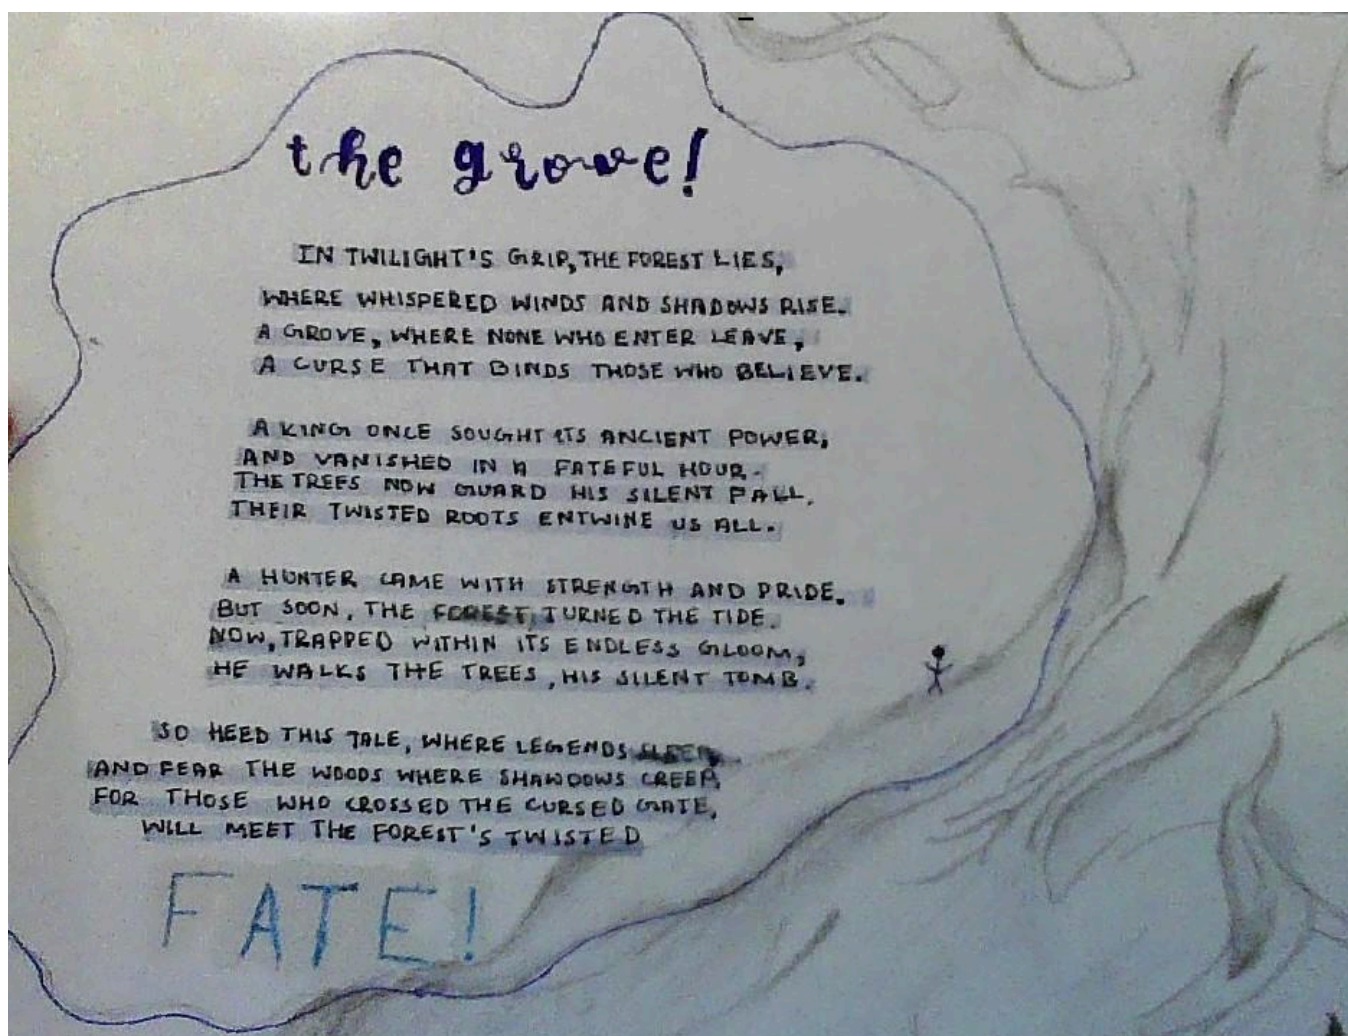 the grove!
IN TWILIGHT'S GRIP, THE FOREST LIES,
WHERE WHISPERED WINDS AND SHADOWS RISE.
A GROVE, WHERE NONE WHO ENTER LEAVE,
A CURSE THAT BINDS THOSE WHO BELIEVE.
A KING ONCE SOUGHT ITS ANCIENT POWER,
AND VANISHED IN A FATEFUL HOUR.
THE TREES NOW GUARD HIS SILENT PALL,
THEIR TWISTED ROOTS ENTWINE US ALL.
A HUNTER CAME WITH STRENGTH AND PRIDE.
BUT SOON, THE FOREST, TURNED THE TIDE.
NOW, TRAPPED WITHIN ITS ENDLESS GLOOM,
HE WALKS THE TREES, HIS SILENT TOMB.
SO HEED THIS TALE, WHERE LEGENDS SLEEP,
AND FEAR THE WOODS WHERE SHAWDOWS CREEP,
FOR THOSE WHO CROSSED THE CURSED GATE,
WILL MEET THE FOREST'S TWISTED
FATE!